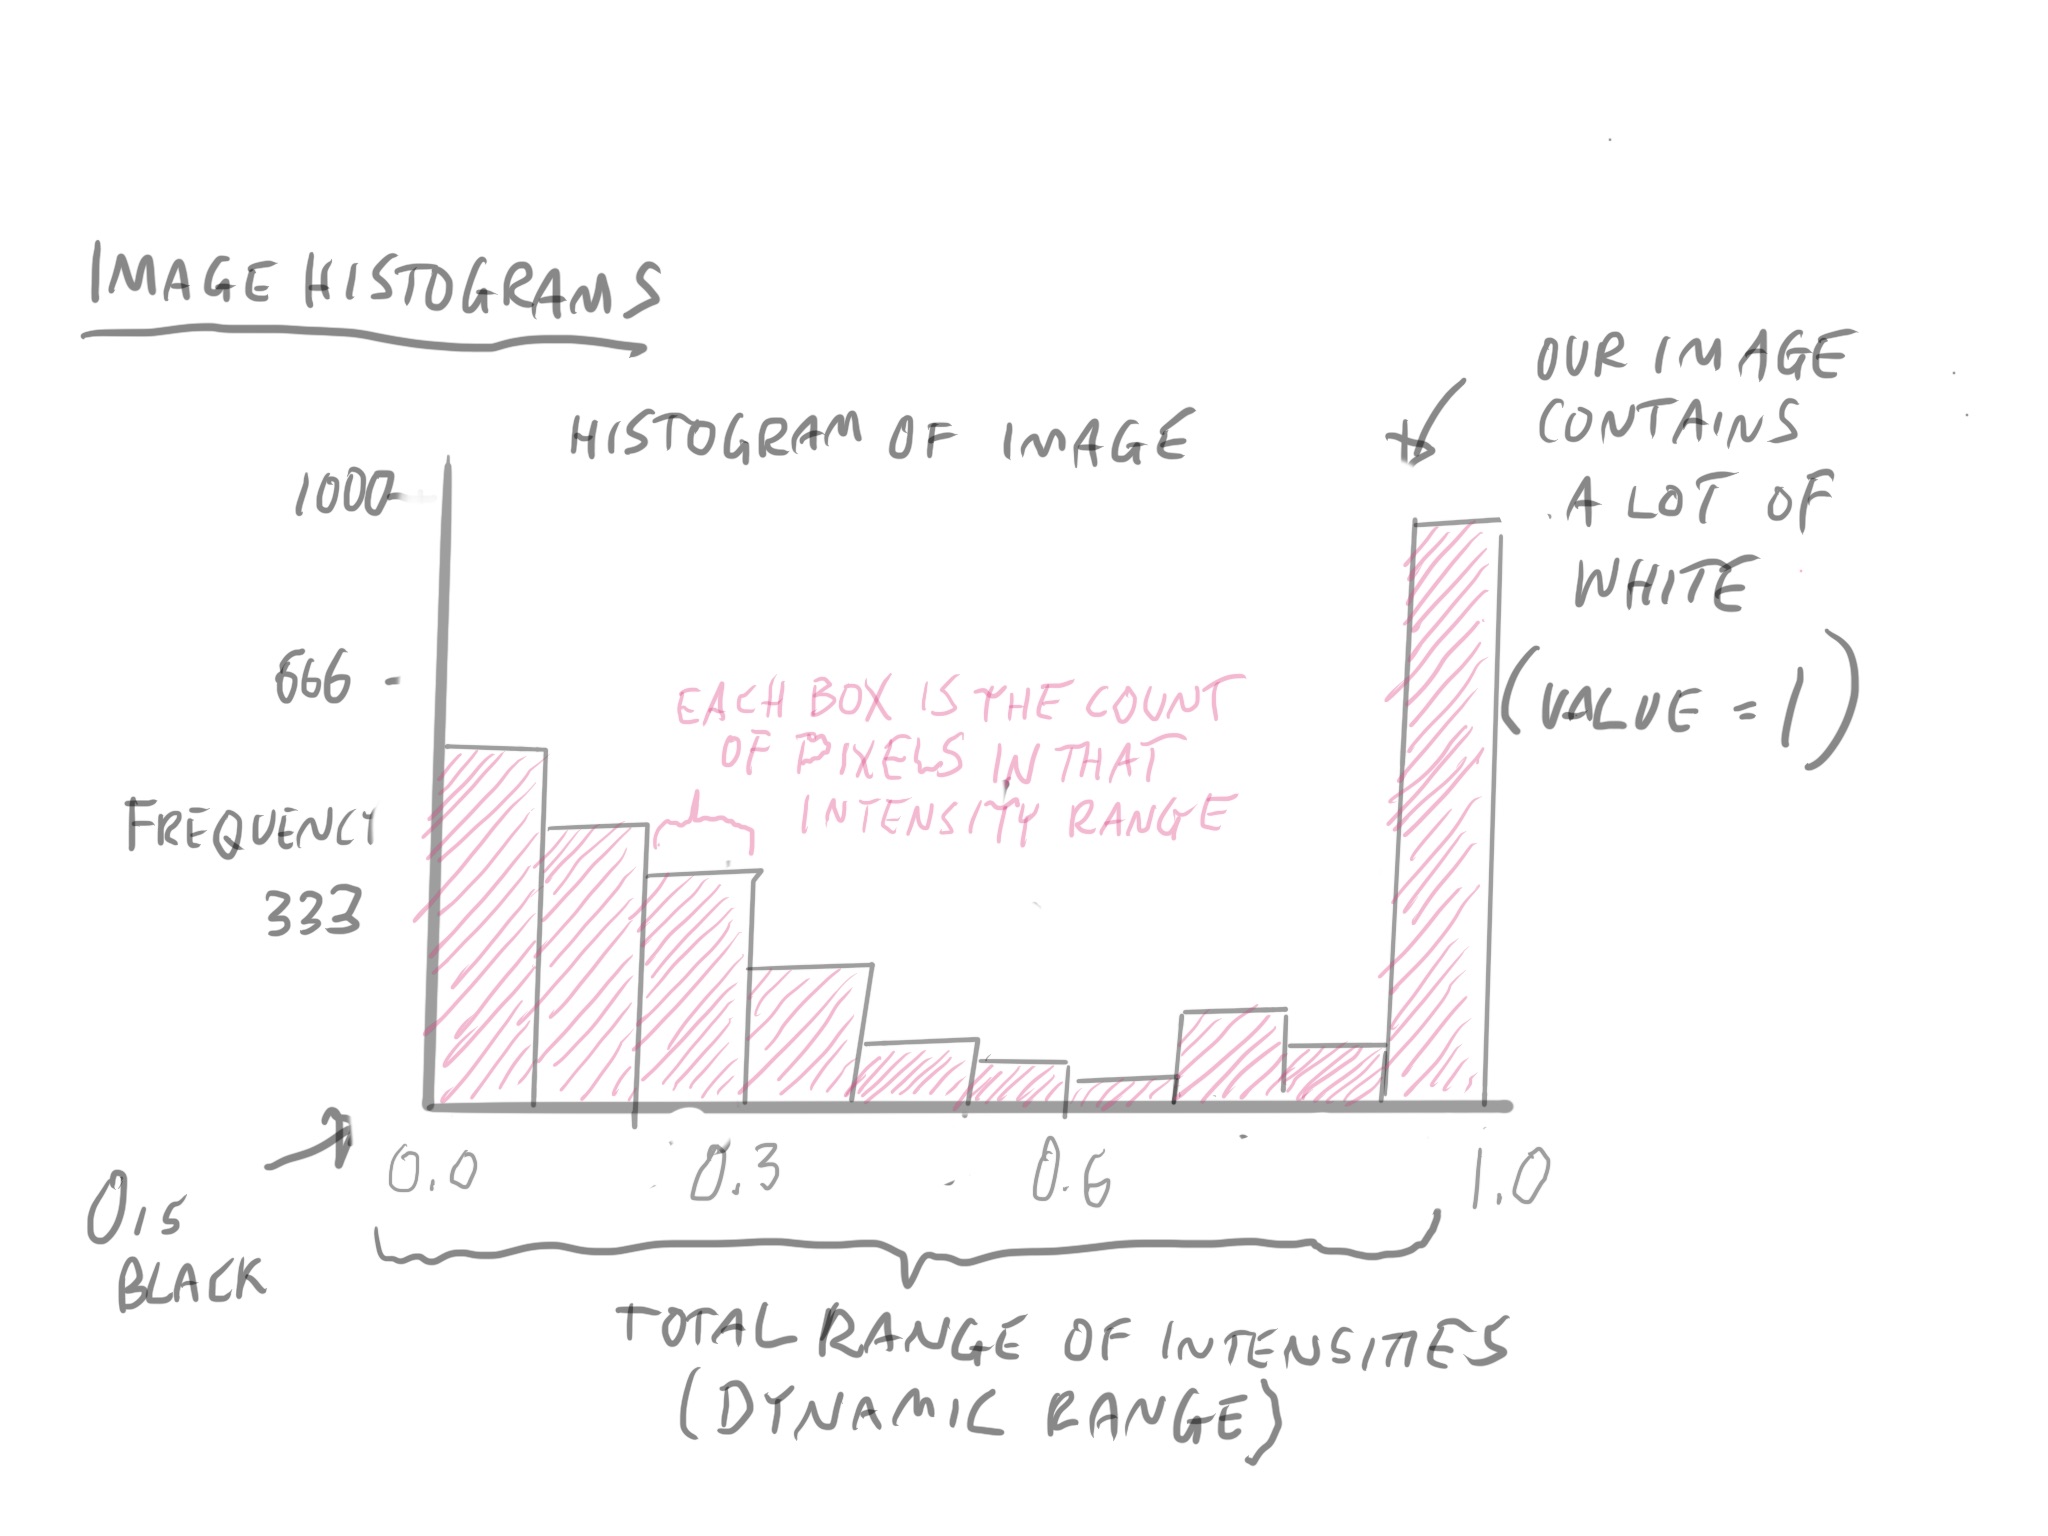 IMAGE HISTOGRAMS
HISTOGRAM OF IMAGE
OUR IMAGE
CONTAINS
A LOT OF
WHITE
(VALUE = 1)
1000
666
FREQUENCY
333
EACH BOX IS THE COUNT
OF PIXELS IN THAT
INTENSITY RANGE
0.0 0.3 0.6 1.0
0 IS
BLACK
TOTAL RANGE OF INTENSITIES
(DYNAMIC RANGE)